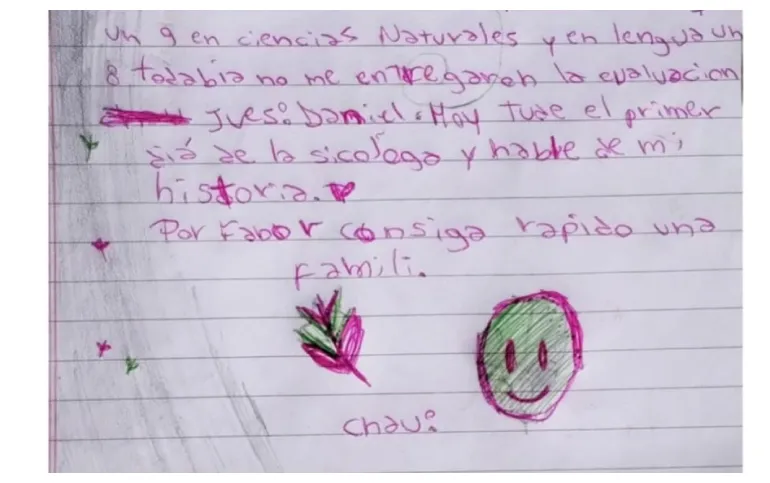 un 9 en ciencias Naturales y en lengua un
8 todabia no me entregaron la evaluacion
Jues: Daniel. Hoy tuve el primer
diá de la sicologa y hable de mi
historia.
Por fabor consiga rapido una
famili.
chau: